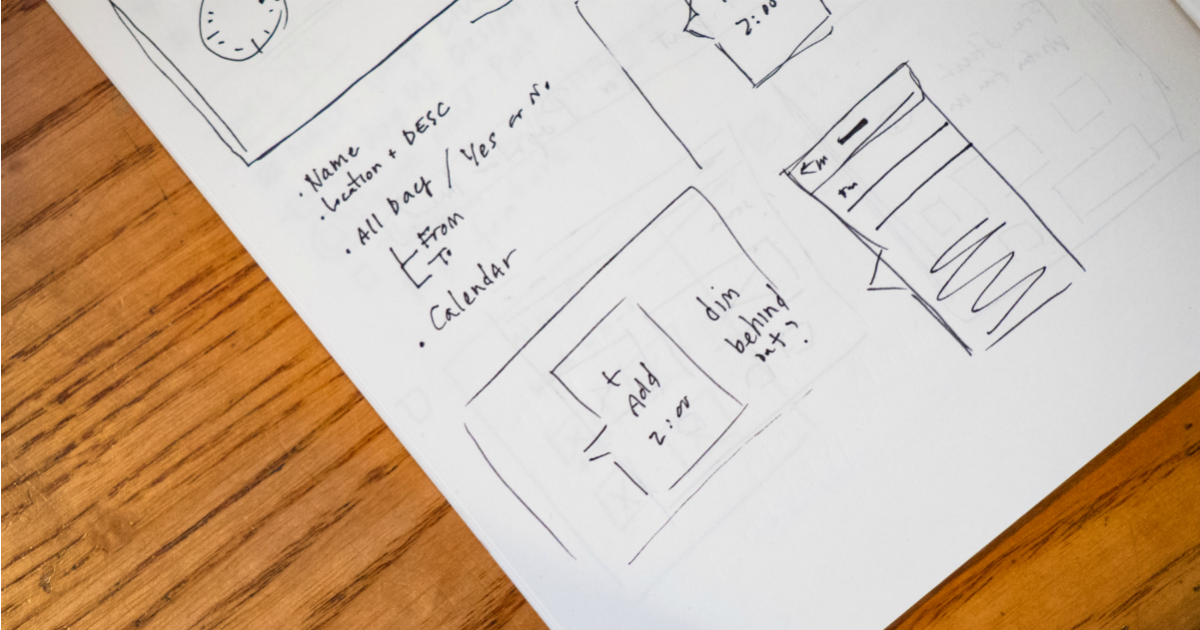 2:00
• Name
• Location + DESC
• All Day / Yes or No
From
To
• Calendar
+
Add
2:00
dim
behind